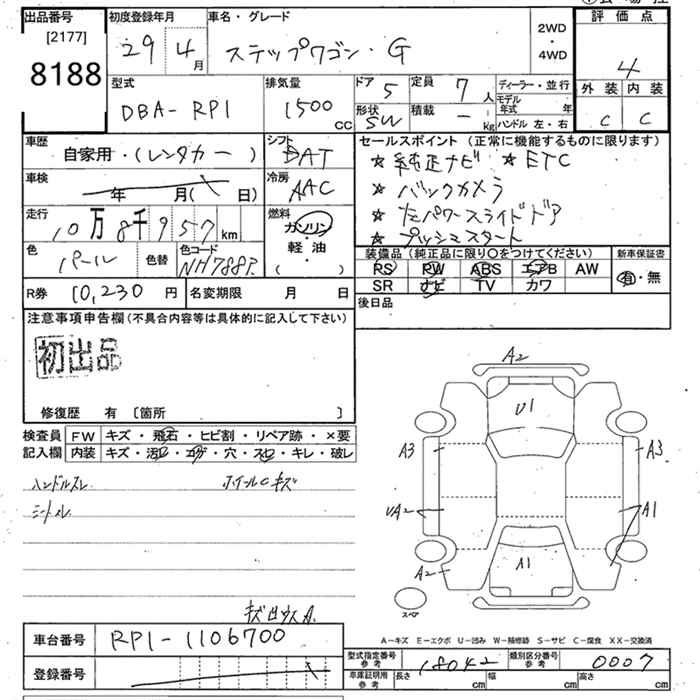 出品番号 初度登録年月 車名・グレード 2WD・4WD 評価点
[2177] 8188 29 4月 ステップワゴン・G 4
型式 排気量 ドア 5 定員 7人 ディーラー・並行 外装 内装
DBA-RP1 1500cc 形状 SW 積載 -kg モデル年式 年 C C
ハンドル 左・右
車歴 シフト セールスポイント(正常に機能するものに限ります)
自家用・(レンタカー) DAT ★純正ナビ ★ETC
車検 冷房 ★バックカメラ
年 月( 日) AAC
走行 燃料 ★左パワースライドドア
10万8千957km ガソリン ★プッシュスタート
軽油
(・)
色 色替 色コード 装備品(純正品に限り〇をつけてください) 新車保証書
パール NH788P RS RW ABS エアB AW 有・無
SR ナビ TV カワ
R券 10,230円 名変期限 月 日 後日品
注意事項申告欄(不具合内容等は具体的に記入して下さい)
初出品
修復歴 有 〔箇所 〕
検査員 FW キズ・飛石・ヒビ割・リペア跡・×要
記入欄 内装 キズ・汚レ・コゲ・穴・スレ・キレ・破レ
ハンドルスレ ホイールCキズ
シートスレ
A2
U1
A3 A3
UA2 A1
A1
A2
スペア
A-キズ E-エクボ U-凹み W-補修跡 S-サビ C-腐食 XX-交換済
車台番号 RP1-1106700
登録番号
型式指定番号 参考 18042 類別区分番号 参考 0007
車庫証明用 参考 長さ cm 幅 cm 高さ cm